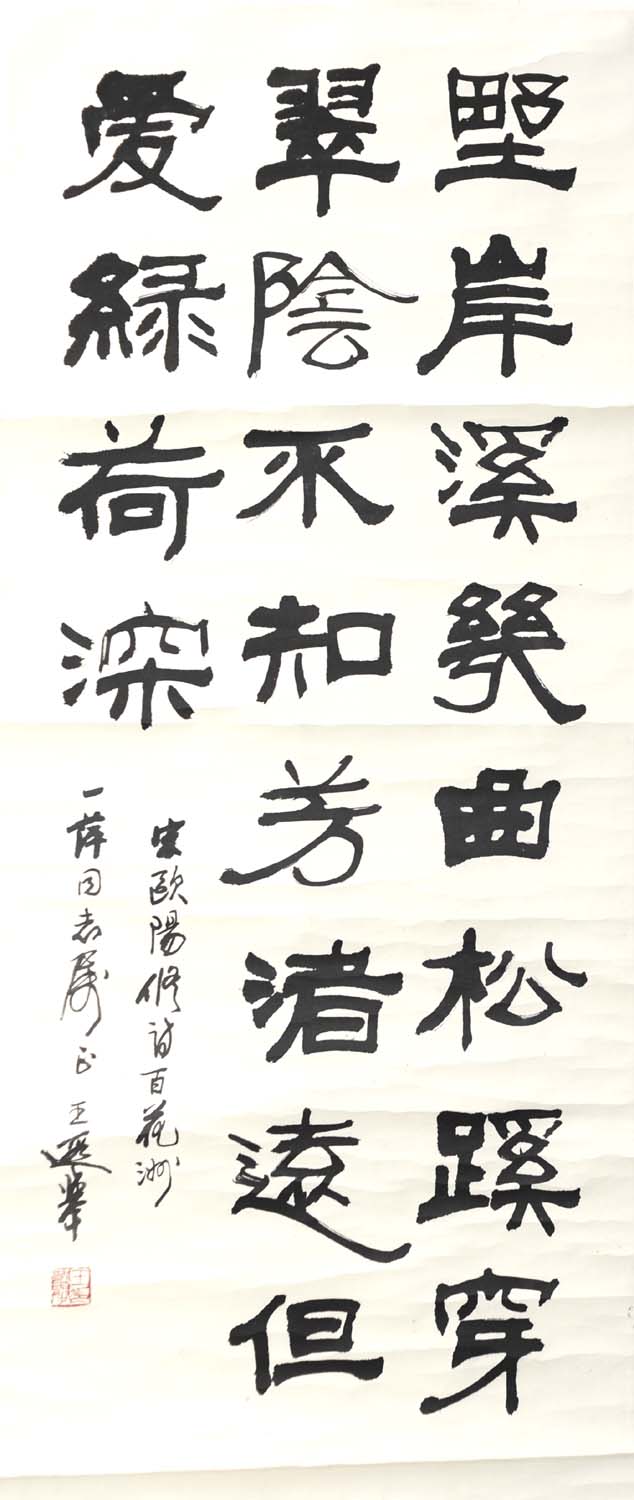 野岸溪幾曲松蹊穿
翠陰不知芳渚遠但
爱綠荷深
宋歐陽修詩百花洲
一萍同志属正 王遐舉